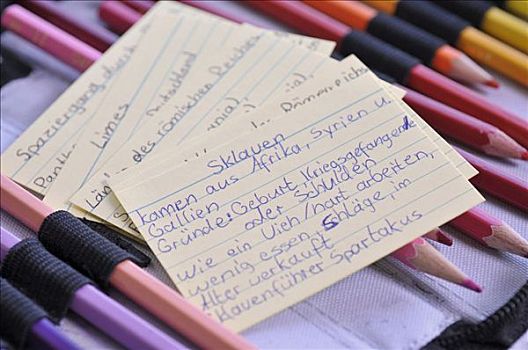 Spaziergang durch
Panth
Limes
Deutschland
des römischen Reiches
Län
Römerreich
Sklaven
kamen aus Afrika, Syrien u.
Gallien
Gründe: Geburt, Kriegsgefangene
oder Schulden
Wie ein Vieh/hart arbeiten,
wenig essen, Schläge, im
Alter verkauft
Sklavenführer Spartakus